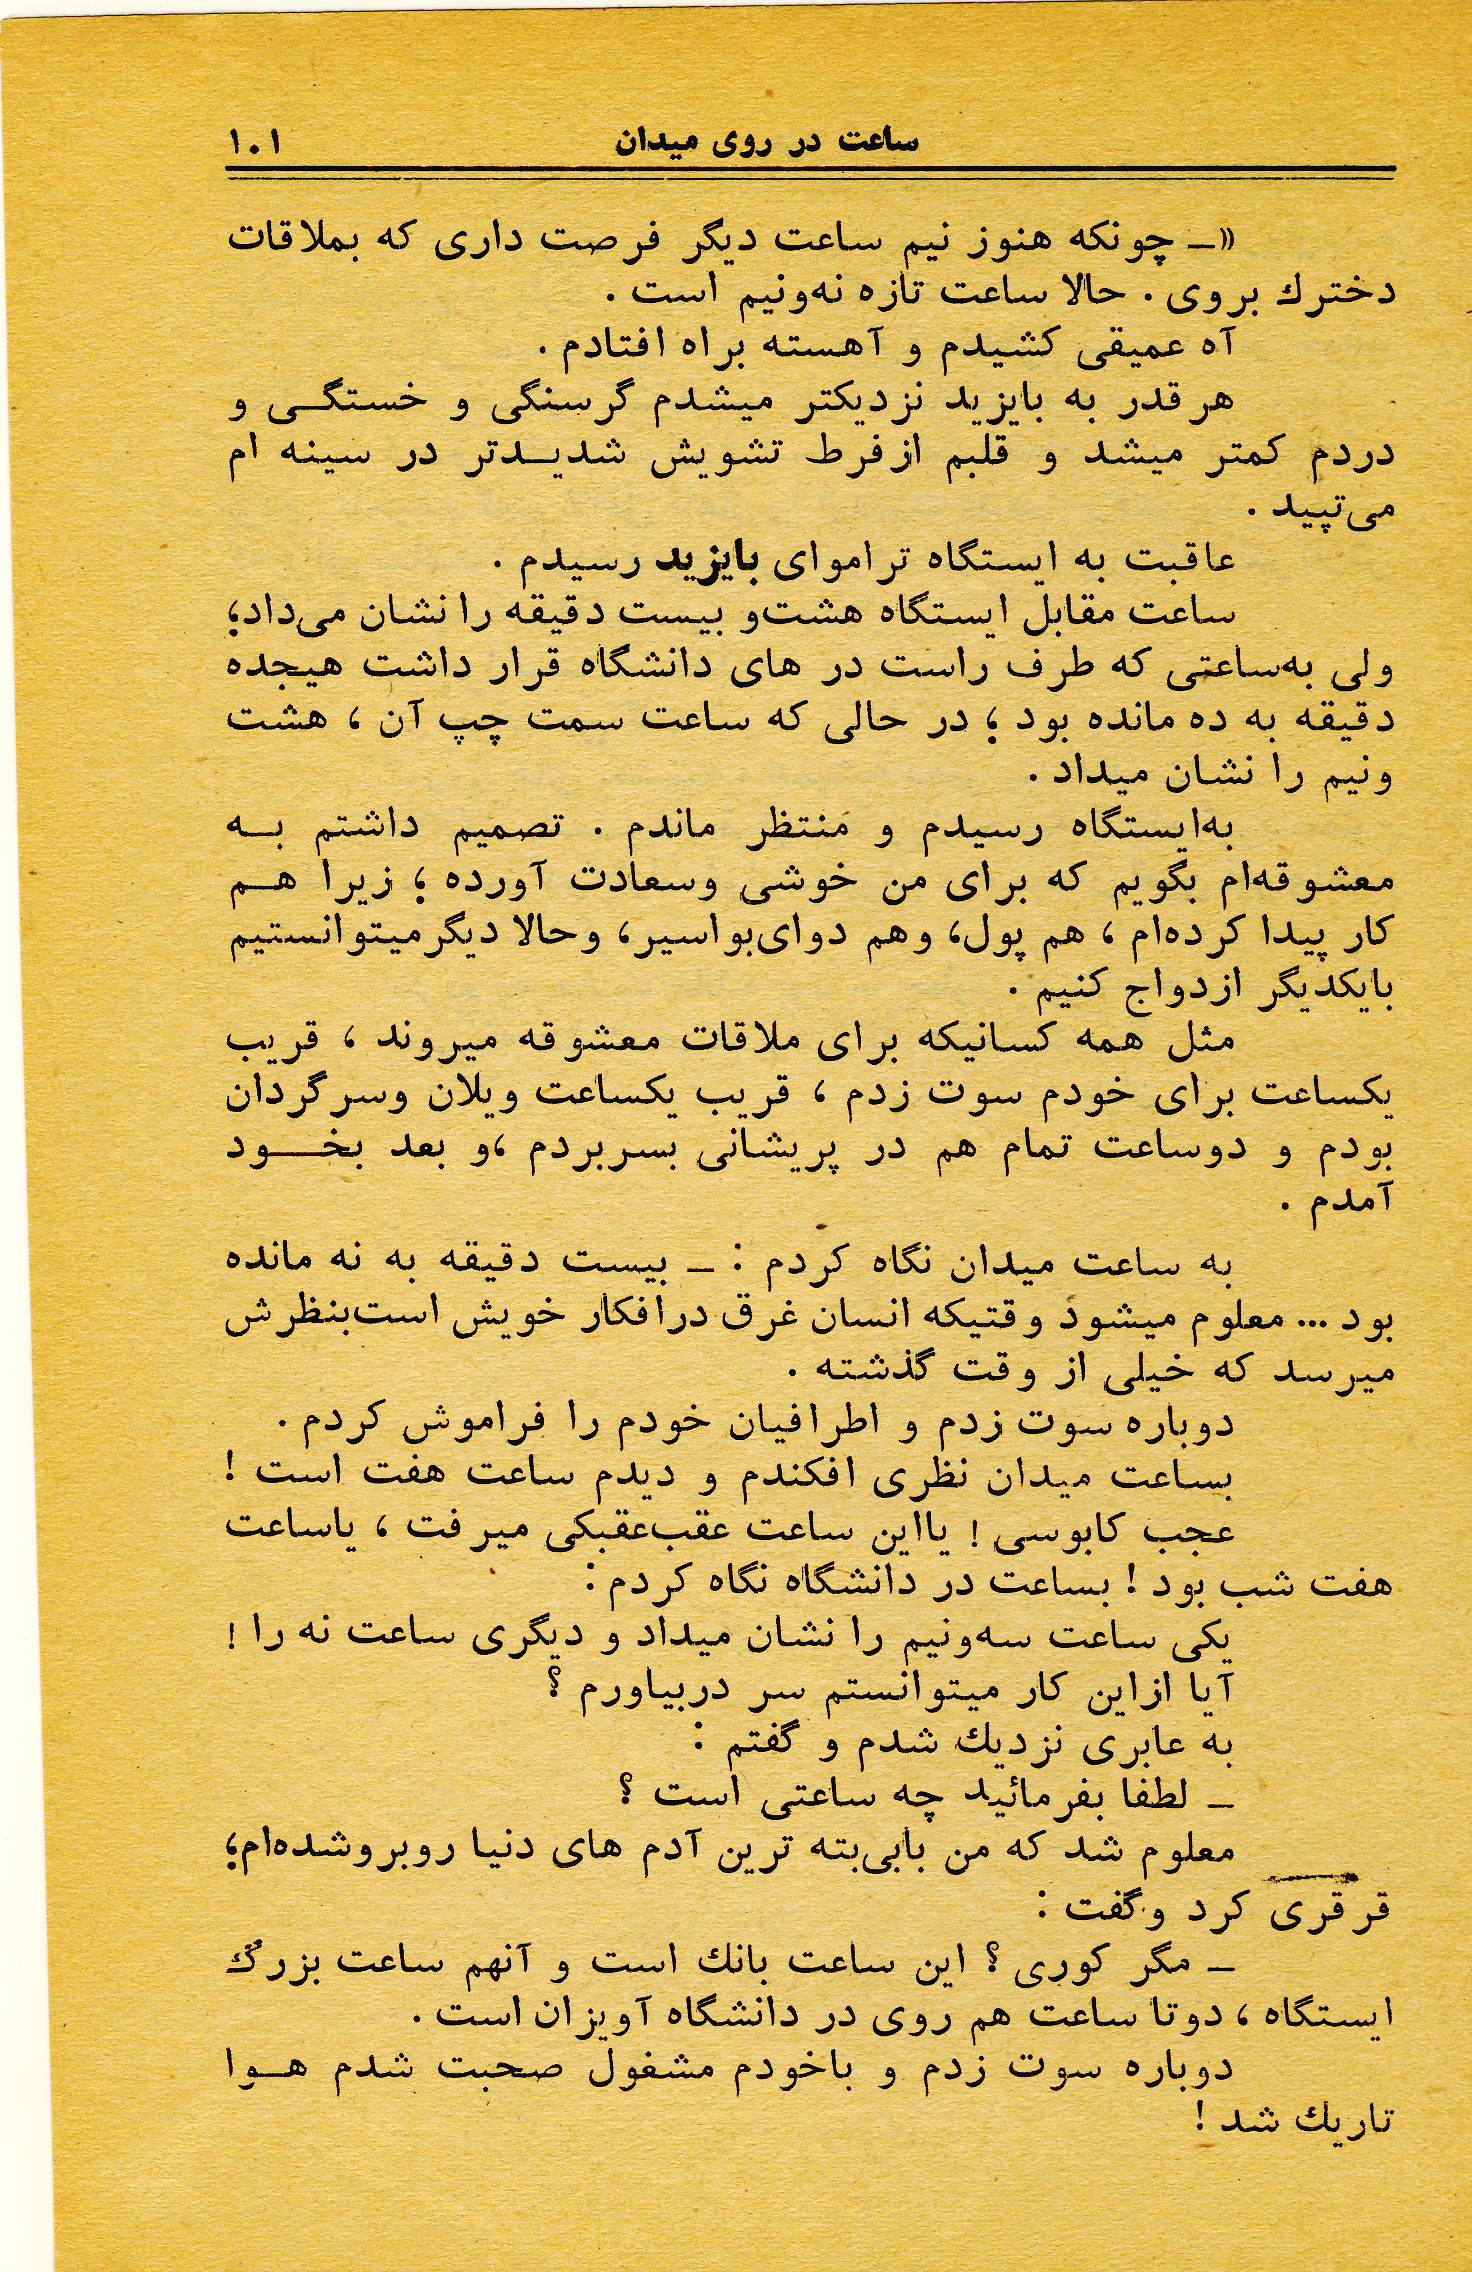 ساعت در روی میدان ۱۰۱
«ـ چونکه هنوز نیم ساعت دیگر فرصت داری که بملاقات
دخترك بروی . حالا ساعت تازه نه‌ونیم است .
آه عمیقی کشیدم و آهسته براه افتادم .
هرقدر به بایزید نزدیکتر میشدم گرسنگی و خستگــی و
دردم کمتر میشد و قلبم ازفرط تشویش شدیــدتر در سینه ام
می‌تپید .
عاقبت به ایستگاه تراموای بایزید رسیدم .
ساعت مقابل ایستگاه هشت‌و بیست دقیقه را نشان می‌داد؛
ولی به‌ساعتی که طرف راست در های دانشگاه قرار داشت هیجده
دقیقه به ده مانده بود ؛ در حالی که ساعت سمت چپ آن ، هشت
ونیم را نشان میداد .
به‌ایستگاه رسیدم و منتظر ماندم . تصمیم داشتم بــه
معشوقه‌ام بگویم که برای من خوشی وسعادت آورده ؛ زیرا هــم
کار پیدا کرده‌ام ، هم پول، وهم دوای‌بواسیر، وحالا دیگرمیتوانستیم
بایکدیگر ازدواج کنیم .
مثل همه کسانیکه برای ملاقات معشوقه میروند ، قریب
یکساعت برای خودم سوت زدم ، قریب یکساعت ویلان وسرگردان
بودم و دوساعت تمام هم در پریشانی بسربردم ،و بعد بخـــود
آمدم .
به ساعت میدان نگاه کردم : ـ بیست دقیقه به نه مانده
بود ... معلوم میشود وقتیکه انسان غرق درافکار خویش است‌بنظرش
میرسد که خیلی از وقت گذشته .
دوباره سوت زدم و اطرافیان خودم را فراموش کردم .
بساعت میدان نظری افکندم و دیدم ساعت هفت است !
عجب کابوسی ! یااین ساعت عقب‌عقبکی میرفت ، یاساعت
هفت شب بود ! بساعت در دانشگاه نگاه کردم :
یکی ساعت سه‌ونیم را نشان میداد و دیگری ساعت نه را !
آیا ازاین کار میتوانستم سر دربیاورم ؟
به عابری نزدیك شدم و گفتم :
ـ لطفا بفرمائید چه ساعتی است ؟
معلوم شد که من بابی‌بته ترین آدم های دنیا روبروشده‌ام؛
قرقری کرد وگفت :
ـ مگر کوری ؟ این ساعت بانك است و آنهم ساعت بزرگ
ایستگاه ، دوتا ساعت هم روی در دانشگاه آویزان است .
دوباره سوت زدم و باخودم مشغول صحبت شدم هــوا
تاریك شد !